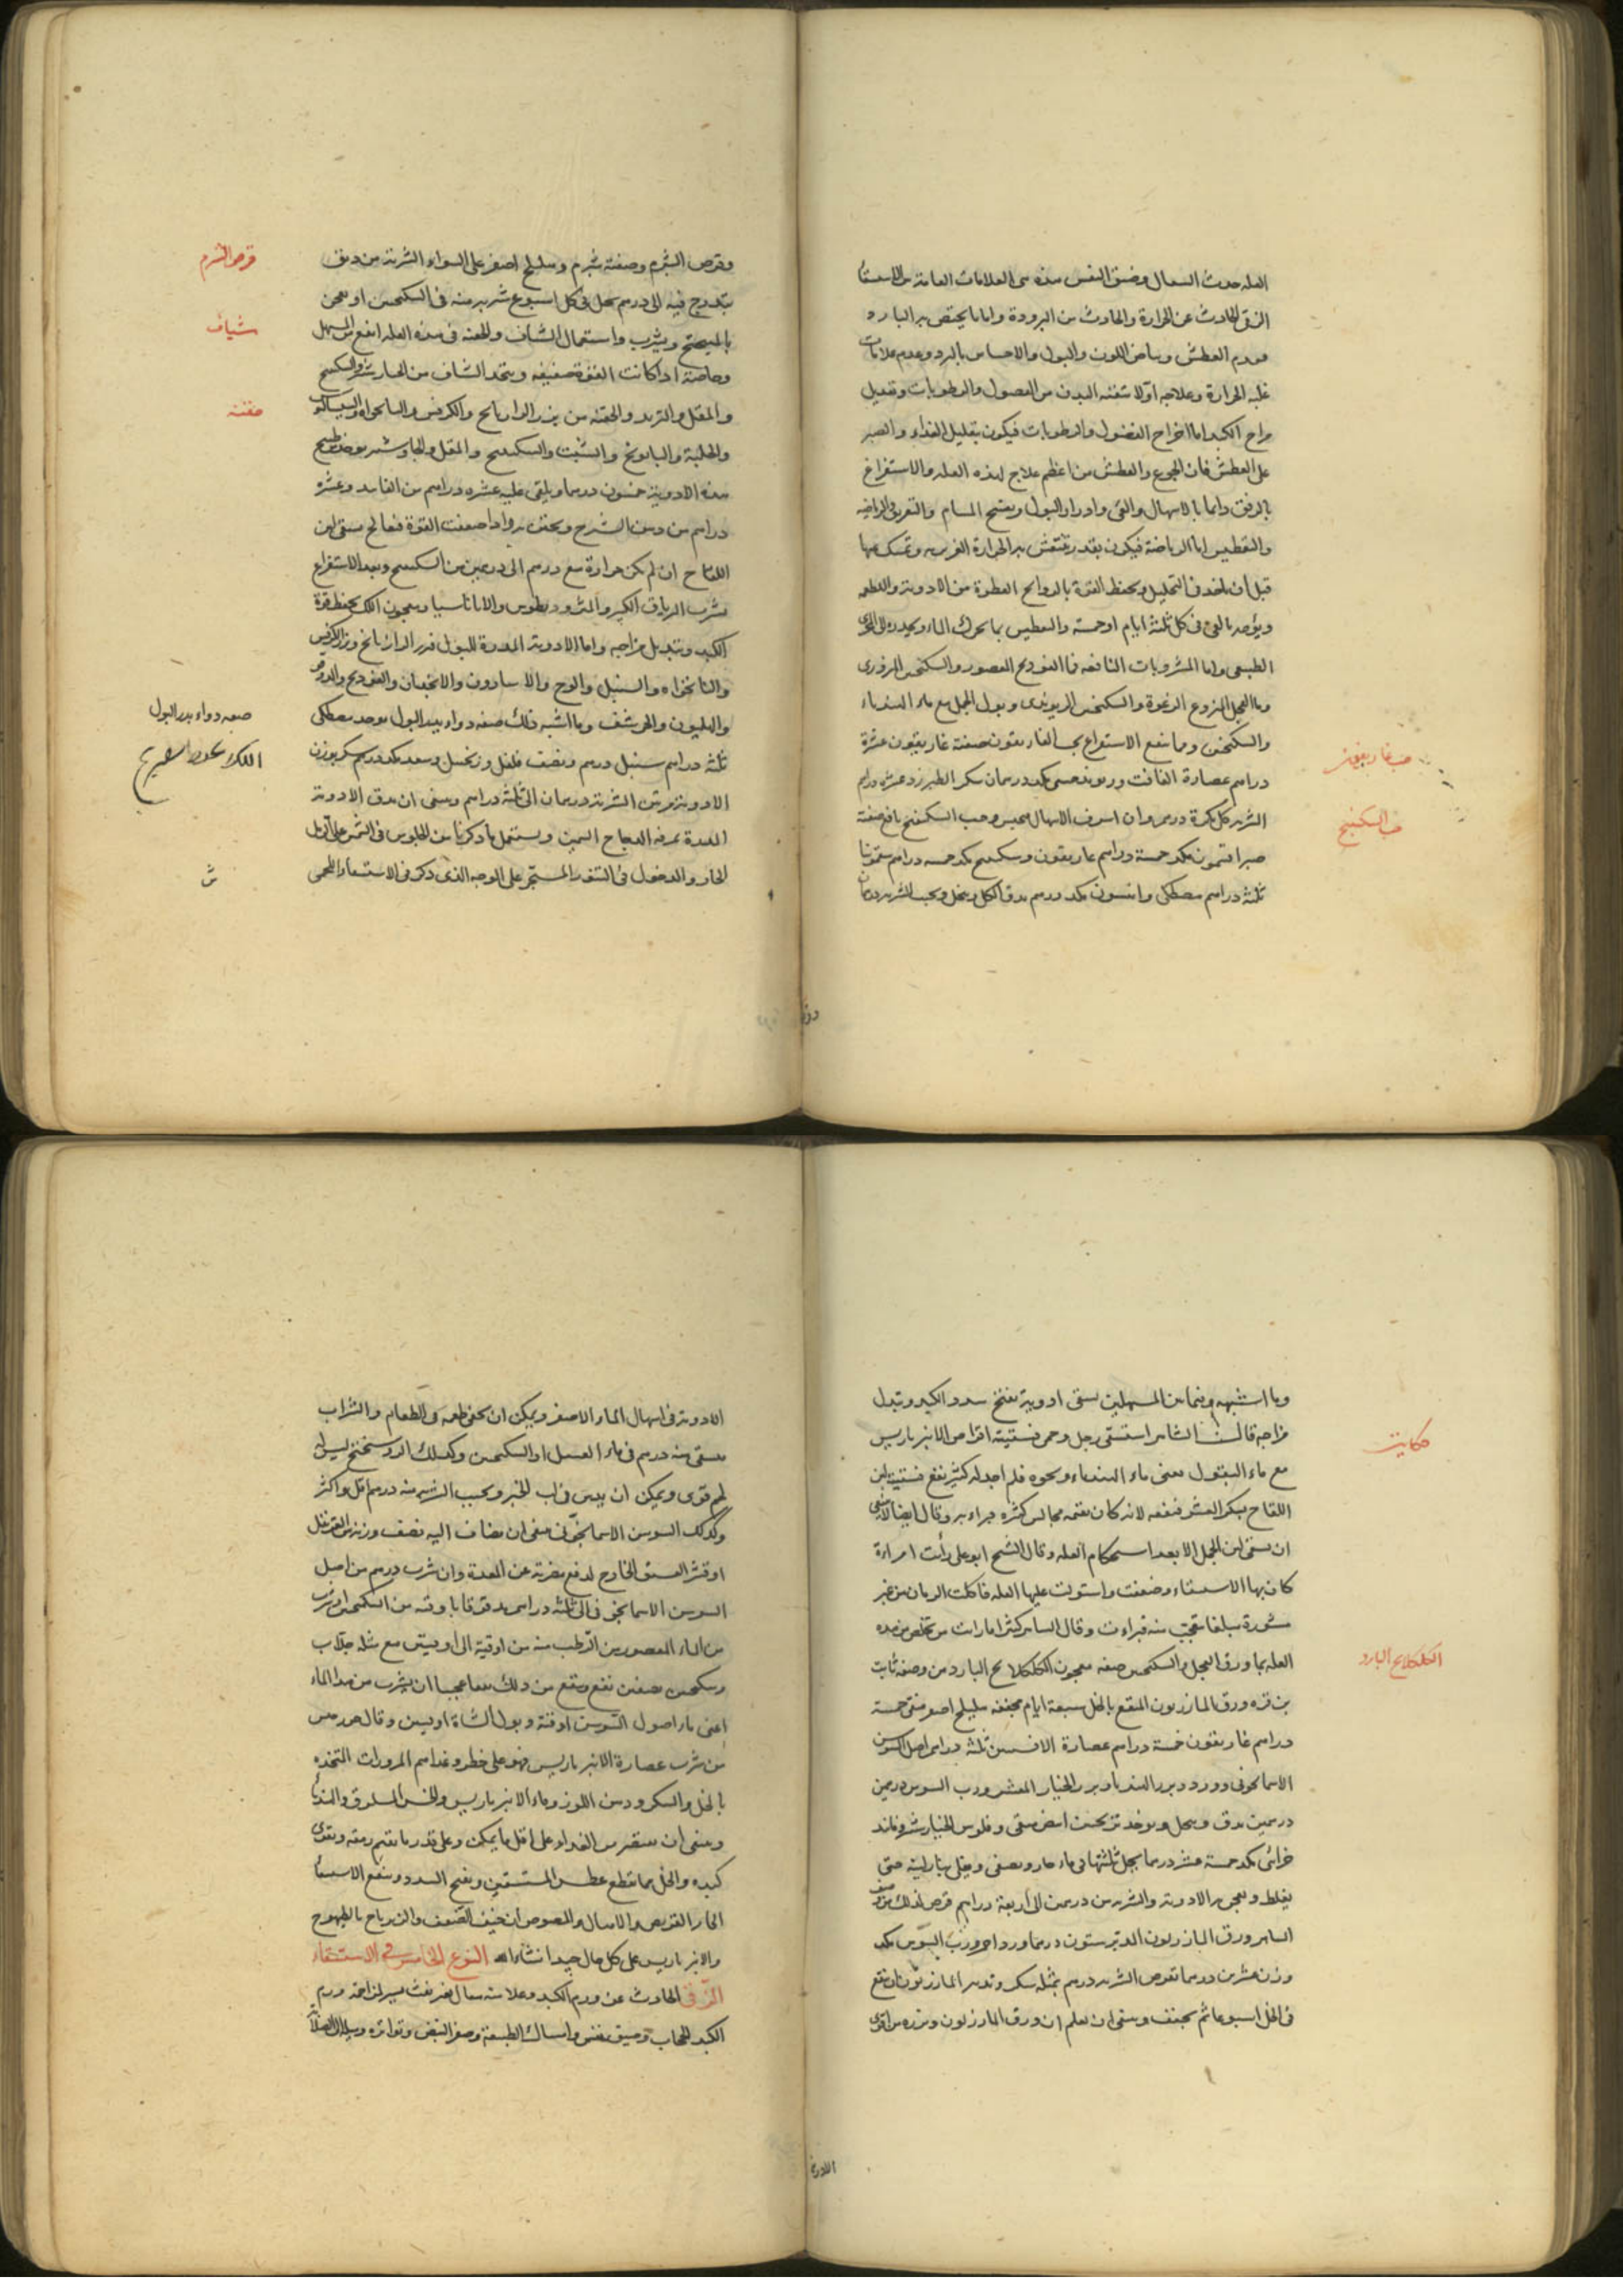 العله حدث السعال وضيق النفس هذه هى العلامات العامة من الاستسقاء
الزقى الحادث عن الحرارة والحادث من البرودة واما ما يختص به البارد
فعدم العطش وبياض اللون والبول والاحساس بالبرد وعدم علامات
غلبة الحرارة وعلاجه اولا تنقية البدن من الفضول والرطوبات وتعديل
مزاج الكبد اما اخراج الفضول والرطوبات فيكون بتقليل الغذاء والصبر
على العطش فان الجوع والعطش من اعظم علاج لهذه العله والاستفراغ
بالرفق دائما بالاسهال والقى وادرار البول وبفتح المسام والتعريق والرياضة
والتعطيس اما الرياضة فيكون بقدر ينتعش به الحرارة الغريزيه وتمسك عنها
قبل ان ياخذ فى التحليل ويحفظ القوة بالروايح العطرة من الادوية والاطعمه
ويؤمر بالقى فى كل ثلثة ايام او خمسة والتعطيس بما يحرك الماء ويحدره الى المجرى
الطبيعى واما المشروبات النافعه فماء الفودنج المعصور والسكنجبين البزورى
وماء الفجل المنزوع الرغوة والسكنجبين الريوندى وبول الجمل مع ماء الهندباء
والسكنجبين ومما ينفع الاستفراغ بحب الغاريقون صفته غاريقون عشرة
دراهم عصارة الغافت وريوند صينى مكد درهمان سكر الطبرزد عشرة دراهم
الشربه كل بكرة درهم وان اسرف الاسهال يحبس وحب السكبينج نافع صفته
صبر افتيمون مكد خمسة دراهم غاريقون وسكبينج مكد خمسه دراهم سقمونيا
ثلثة دراهم مصطكى وانيسون مكد درهم يدق الكل وينخل ويحبب الشربه درهمان
حب غاريقون
حب السكبينج
وقرص الشبرم وصفته شبرم وهليلج اصفر على السواء الشربة من دانق
يتدرج فيه الى درهم يحل فى كل اسبوع شربه منه فى السكنجبين او يعجن
بالميبختج ويشرب واستعمال الشياف والحقنه فى هذه العله انفع من المسهل
وخاصة اذا كانت القوة ضعيفه ويتخذ الشياف من الجاوشير والسكبينج
والمقل والتربد والحقنه من بزر الرازيانج والكرفس والنانخواه والسيساليوس
والحلبة والبابونج والشبت والسكبينج والمقل والجاوشير يوخذ طبيخ
هذه الادوية خمسون درهما ويلقى عليه عشره دراهم من الفانيد وعشرة
دراهم من دهن الشيرج ويحقن به واذا ضعفت القوة فعالج بسقى لبن
اللقاح ان لم يكن حرارة مع درهم الى درهمين من السكبينج وبعد الاستفراغ
يشرب الترياق الكبير والمثروديطوس والاثاناسيا ومعجون اللك يحفظ قوة
الكبد وتبديل مزاجه واما الادوية المدرة للبول فبزر الرازيانج وبزر الكرفس
والنانخواه والسنبل والوج والاسارون والانجدان والفودنج والدوقو
والهليون والحرشف وما اشبه ذلك صفه دواء يدر البول يوخذ مصطكى
ثلثة دراهم سنبل درهم ونصف فلفل وزنجبيل وسعد مكد درهم سكر بوزن
الادوية مرتين الشربة درهمان الى ثلثة دراهم وينبغى ان يدق الادوية
المدرة بمرقه الدجاج السمين ويستعمل ما ذكرنا من الجلوس فى الشمس على الرمل
الحار والدخول فى التنور المسجر على الوجه الذى ذكر فى الاستسقاء اللحمى
قرص الشبرم
شياف
حقنه
صفه دواء يدر البول
وما اشبهه وفيما بين المسهلين يسقى ادوية تفتح سدد الكبد وتبدل
مزاجه قال الساهر استسقى رجل وحمى فسقيته اقراص الانبرباريس
مع ماء البقول يعنى ماء الهندباء ونحوه فلم اجد له كثير نفع فسقيته لبن
اللقاح بسكر العشر فنفعه لانه كان يقيمه مجالس كثيرة فبراء به وقال ايضا لا ينبغى
ان يسقى لبن الجمل الا بعد استحكام العله وقال الشيخ ابو على رأيت امراءة
كان بها الاستسقاء وضعفت واستولت عليها العله فاكلت الرمان من غير
مشورة مبلغا تعجب منه فبراءت وقال الساهر كثيرا ما رايت من تخلص من هذه
العله بماء ورق الفجل والسكنجبين صفه معجون الكلكلانج البارد من وصفه ثابت
بن قره ورق المازريون المنقع بالخل سبعة ايام مجففه هليلج اصفر منقى خمسة
دراهم غاريقون خمسة دراهم عصارة الافسنتين ثلثة دراهم اصل السوسن
الاسمانجونى وورد وبزر الهندبا وبزر الخيار المقشر ورب السوس درهمين
درهمين يدق وينخل ويوخذ ترنجبين ابيض منقى وفلوس الخيارشنبر وفانيد
خزائنى مكد خمسة عشر درهما يحل ثلثتها فى ماء حار ويصفى ويغلى بنار لينه حتى
يغلظ ويعجن به الادوية والشربه من درهمين الى اربعة دراهم قرص لذلك من
الساهر ورق المازريون المدبر ستون درهما ورد احمر ورب السوس مكد
وزن عشرين درهما تقرص الشربه درهم بمثله سكر وتدبير المازريون ان ينقع
فى الخل اسبوعا ثم يجفف وينبغى ان تعلم ان ورق المازريون وبزره من اقوى
حكايت
الكلكلانج البارد
الادوية
الادوية فى اسهال الماء الاصفر ويمكن ان يخفى طعمه فى الطعام والشراب
يسقى منه درهم فى ماء العسل او السكنجبين وكذلك الروسختج ليس له
طعم قوى ويمكن ان يدس فى لب الخبز ويحبب الشربه منه درهم اقل واكثر
وكذلك السوسن الاسمانجونى ينبغى ان يضاف اليه نصف وزنه من القرنفل
او قشر الفستق الخارج لدفع مضرته عن المعدة وان شرب درهم من اصل
السوسن الاسمانجونى الى ثلثة دراهم يدق ناعما باوقيه من السكنجبين او يشرب
من الماء المعصور من الرطب منه من اوقية الى اوقيتين مع مثله جلاب
وسكنجبين نصفين نفع وينفع من ذلك نفعا عجيبا ان يشرب من هذا الماء
اعنى ماء اصول السوسن اوقية وبول الشاة اوقيتين وقال
من شرب عصارة الانبرباريس فهو على خطر وغداهم المزورات المتخذه
بالخل والسكر ودهن اللوز وماء الانبرباريس والخس المسلوق والهندبا
وينبغى ان يقتصر من الغذاء على اقل ما يمكن وعلى قدر ما يقيم رمقه ويقوى
كبده والخل مما يقطع عطس المستسقين ويفتح السدد وينفع الاستسقاء
الحار القريص والهلام والمصوص ان خيف الضعف والزيرباج بالطيهوج
والانبرباريس على كل حال جيد انشاء الله النوع الخامس فى الاستسقاء
الزقى الحادث عن ورم الكبد وعلامته سعال بغير نفث يسير لمزاحمة ورم
الكبد للحجاب وضيق نفس وامساك الطبيعة وصغر النبض وتواتره